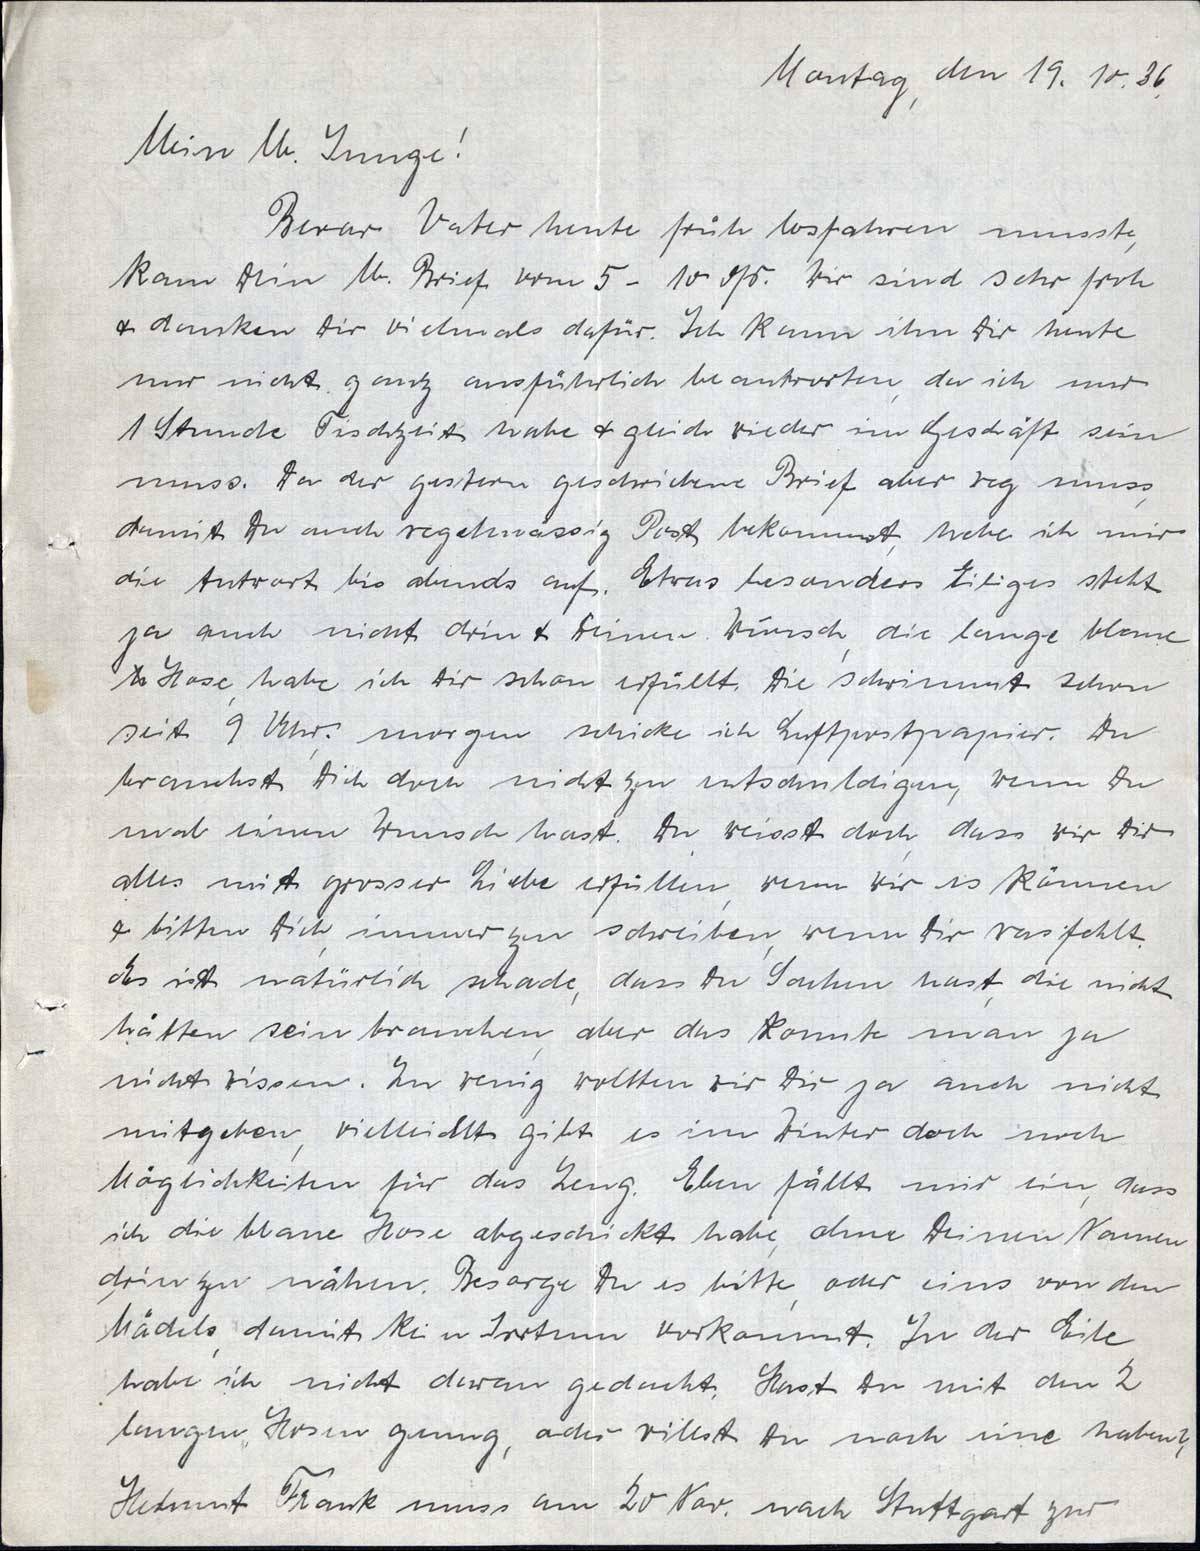 Montag, den 19. 10. 36.
Mein lb. Junge!
Bevor Vater heute früh losfahren musste,
kam Dein lb. Brief vom 5 - 10 ds. Wir sind sehr froh
& danken Dir vielmals dafür. Ich kann ihn Dir heute
nur nicht ganz ausführlich beantworten, da ich nur
1 Stunde Tischzeit habe & gleich wieder im Geschäft sein
muss. Da der gestern geschriebene Brief aber weg muss,
damit Du auch regelmässig Post bekommst, hebe ich mir
die Antwort bis abends auf. Etwas besonders Eiliges steht
ja auch nicht drin & Deinen Wunsch, die lange blaue
Hose, habe ich Dir schon erfüllt. Die schwimmt schon
seit 9 Uhr; morgen schicke ich Luftpostpapier. Du
brauchst Dich doch nicht zu entschuldigen, wenn Du
mal einen Wunsch hast. Du weisst doch, dass wir Dir
alles mit grosser Liebe erfüllen, wenn wir es können
& bitten Dich, immer zu schreiben, wenn Dir was fehlt.
Es ist natürlich schade, dass Du Sachen hast, die nicht
hätten sein brauchen, aber das konnte man ja
nicht wissen. Zu wenig wollten wir Dir ja auch nicht
mitgeben, vielleicht gibt es im Winter doch noch
Möglichkeiten für das Zeug. Eben fällt mir ein, dass
ich die blaue Hose abgeschickt habe, ohne Deinen Namen
drin zu nähen. Besorge Du es bitte, oder eins von den
Mädels, damit kein Irrtum vorkommt. In der Eile
habe ich nicht daran gedacht. Hast Du mit den 2
langen Hosen genug, oder willst Du noch eine haben?
Helmut Frank muss am 20 Nov. nach Stuttgart zur